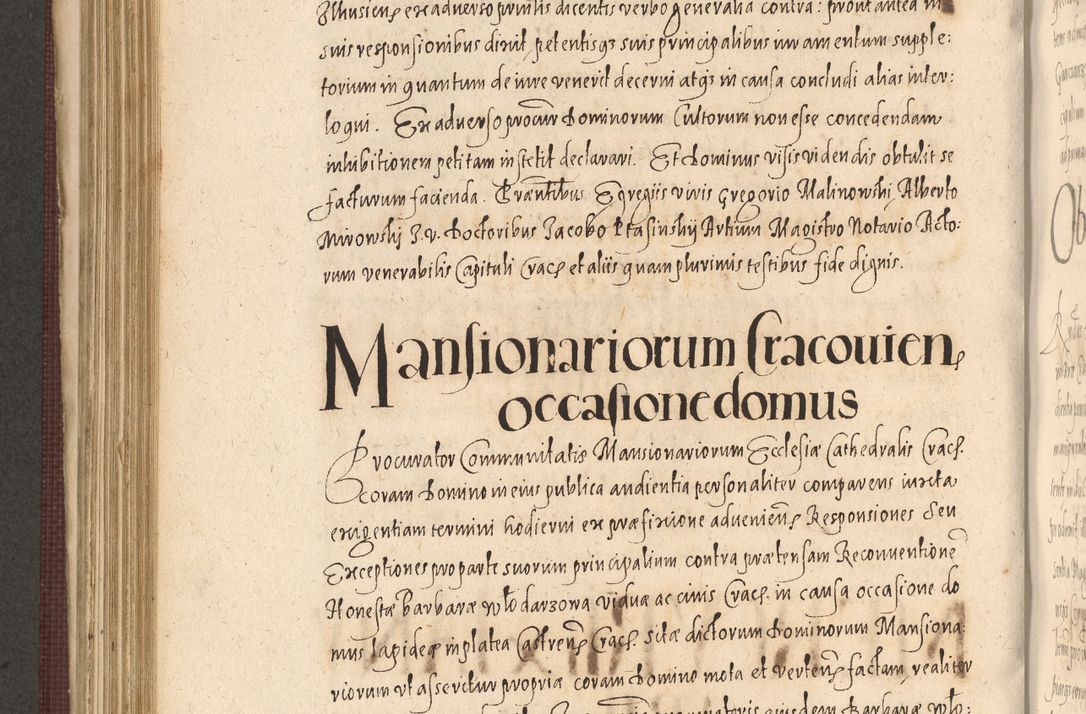 Illusien. ex adverso prvilis dicentis verbo generalia contra: prout antea in
suis responsionibus dixit, petentisq3 suis principalibus iuramentum supple:
torium in quantum de iure venerit decerni atq3 in causa concludi alias inter:
loqui. Ex adverso procur Dominorum Cultorum non esse concedendam
inhibitionem petitam institit declarari. Et Dominus visis videndis obtulit se
facturum facienda. Præntibus Egregiis viris Gregorio Malinowskj Alberto
Mirowskj I. V. Doctoribus Jacobo Ptasinskij Artium Magistro Notario Acto:
rum venerabilis Capituli Crac. et aliis quam plurimis testibus fide dignis.
Mansionariorum Cracouien,
occasione domus
Procurator Communitatis Mansionariorum Ecclesiæ Cathedralis Crac.
coram Domino in eius publica audientia personaliter comparens iuxta
exigentiam termini hodierni ex præfixione advenien. Responsiones seu
Exceptiones pro parte suorum principalium contra prætensam Reconuentionē
Honestæ Barbaræ Włodarzowa viduæ ac civis Crac. in causa occasione do
mus lapideæ in platea Castren. Crac. sitæ dictorum Dominorum Mansiona:
riorum vt asseritur propriæ coram Domino mota et verten. factam, realiter
eiusdem Barbaræ Wło: